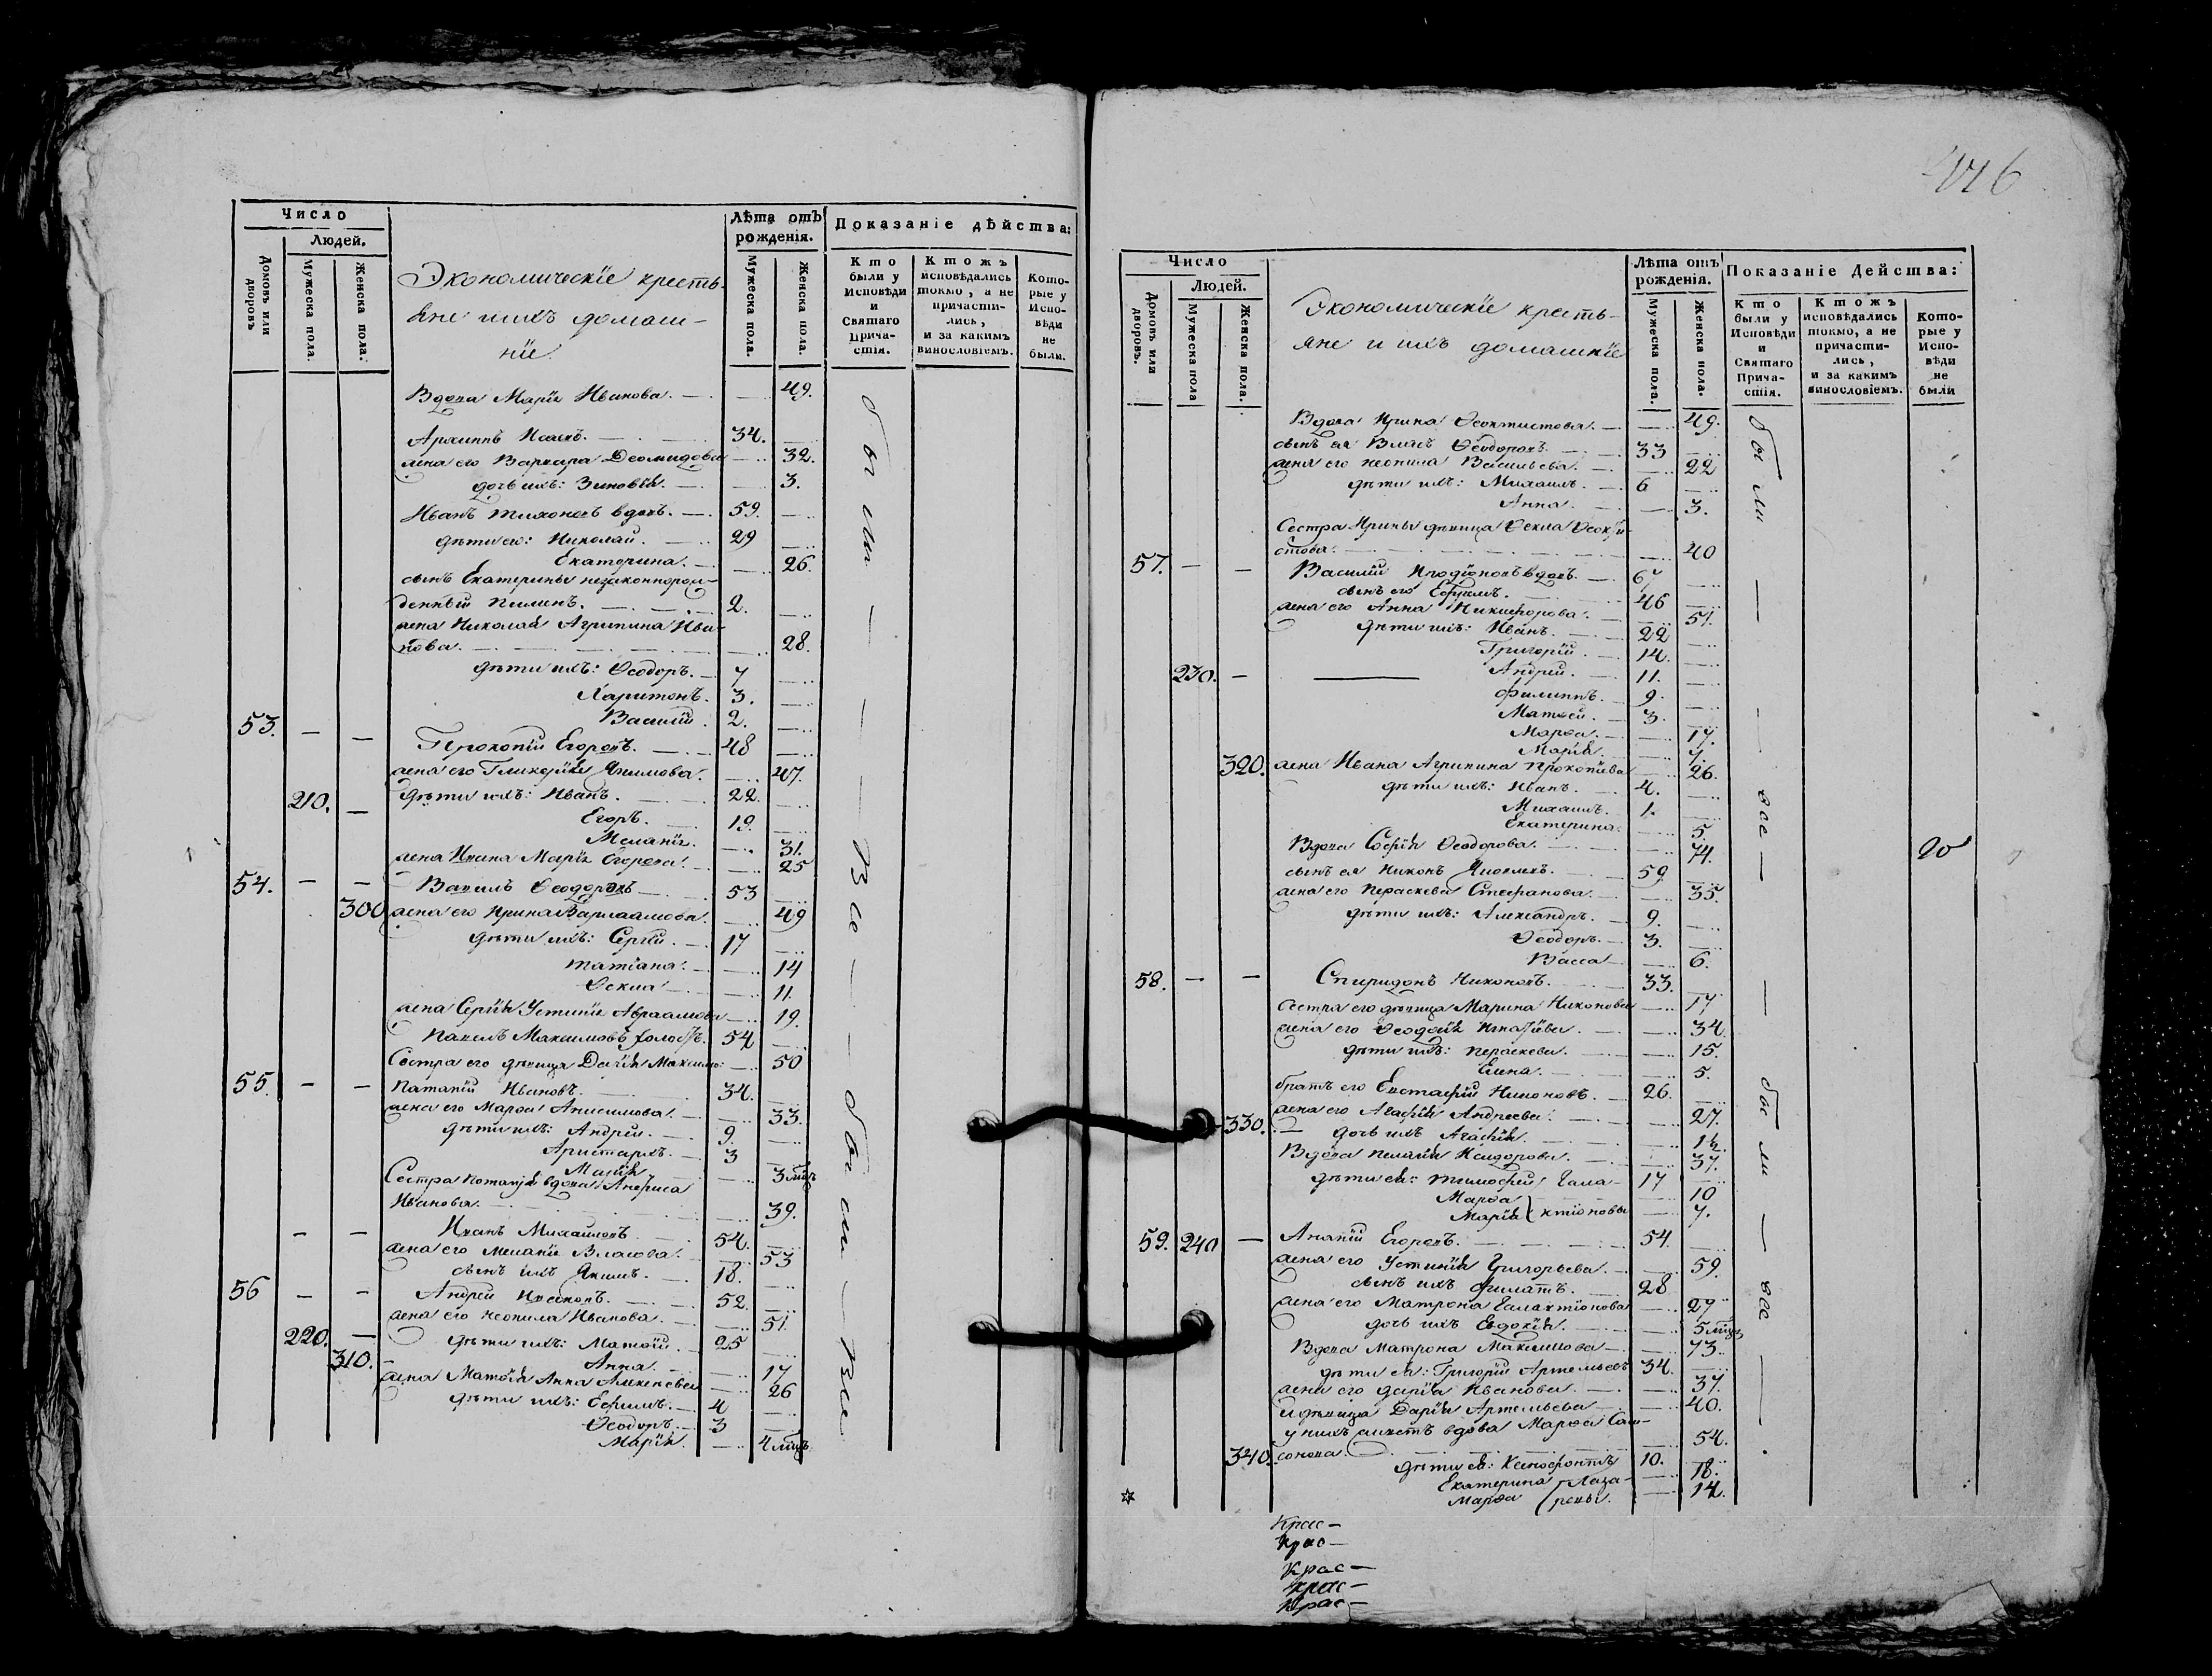 Число
Людей.
Домовъ или дворовъ
Мужеска пола.
Женска пола.
Экономическіе кресть-
яне и ихъ домаш-
ніе.
Лѣта отъ рожденія.
Мужеска пола.
Женска пола.
Показаніе дѣйства:
Кто были у Исповѣди и Святаго Прича-стія.
Ктожъ исповѣдались токмо, а не причасти-лись, и за какимъ винословіемъ.
Кото-рые у Испо-вѣди не были.
Вдова Марія Иванова. — 49.
Архиппъ Исаевъ. — 34.
жена его Варвара Деомидова — 32.
дочь ихъ: Зиновія. — 3.
Иванъ Тихоновъ вдовъ. — 59.
дѣти его: Николай. — 29
Екатерина. — 26.
сынъ Екатерины незаконнорож-
денный Пименъ. — 2.
жена Николая Агрипина Ива-
нова. — 28.
дѣти ихъ: Ѳеодоръ. — 7
Харитонъ. 3.
Василій. 2.
53. — — Прокопій Егоровъ. — 48
жена его Гликерія Якимова. — 47.
210. — дѣти ихъ: Иванъ. — 22.
Егоръ. — 19.
Меланія. — 31.
жена Ивана Марія Егорова. — 25
54. — — Вавилъ Ѳеодоровъ — 53
300 жена его Ирина Варлаамова. — 49
дѣти ихъ: Сергей. — 17
Татіана. — 14
Ѳекла — 11.
жена Сергія Устинія Авраамова — 19.
Павелъ Максимовъ холостъ. 54
Сестра его дѣвица Дарія Максимо: — 50
55. — — Патапій Ивановъ. 34.
жена его Марѳа Анисимова. — 33.
дѣти ихъ: Андрей. — 9.
Аристархъ. — 3
Марія — 3 мѣц
Сестра Потапія вдова Анфиса
Иванова. — 39.
— — Иванъ Михайловъ — 54.
жена его Меланія Власова. — 53
сынъ ихъ Якимъ. — 18.
56 — — Андрей Ивановъ. — 52.
жена его Неонила Иванова. — 51.
220. — дѣти ихъ: Матѳій. — 25
310. — Анна. — 17
жена Матѳія Анна Алексѣева — 26
дѣти ихъ: Ефимъ. — 4
Ѳеодоръ. — 3
Марія. — 4 мѣцъ
были — — — Все — были — Все
446
Число
Людей.
Домовъ или дворовъ.
Мужеска пола
Женска пола.
Экономическіе кресть-
яне и ихъ домашніе
Лѣта отъ рожденія.
Мужеска пола.
Женска пола.
Показаніе Действа:
Кто были у Исповѣди и Святаго Прича-стія.
Ктожъ исповѣдались токмо, а не причасти-лись, и за какимъ винословіемъ.
Кото-рые у Испо-вѣди не были
Вдова Ирина Ѳеоктистова. — 49.
сынъ ея Власъ Ѳеодоровъ. — 33
жена его Неонила Васильева. — 22
дѣти ихъ: Михаилъ. — 6
Анна. — 3.
Сестра Ирины дѣвица Ѳекла Ѳеокти-
стова. — 40
57. — — Василій Иродіоновъ вдовъ. — 67
сынъ его Ефимъ. — 46
жена его Анна Никифорова. — 51.
дѣти ихъ: Иванъ. — 22
Григорій. — 14.
230. — Андрей. — 11.
Филиппъ. — 9.
Матвей. — 3.
Марѳа. — 17.
Марія. — 7.
320. жена Ивана Агрипина Прокопіева — 26.
дѣти ихъ: Иванъ. — 4.
Михаилъ. 1.
Екатерина. — 5.
Вдова Софія Ѳеодорова. — 74.
сынъ ея Никонъ Яковлевъ. — 59
жена его Параскева Стефанова. — 35.
дѣти ихъ: Александръ. — 9.
Ѳеодоръ. — 3.
Васса — 6.
58. — — Спиридонъ Никоновъ. — 33.
Сестра его дѣвица Марина Никонова — 17
жена его Ѳеодосія Игнатіева. — 34
дѣти ихъ: Параскева. — 15.
Елена. — 5.
братъ его Евстафій Никоновъ. — 26.
жена его Агафія Андреева. — 27.
330. — дочь ихъ Агафія. — 1½
Вдова Пелагія Исидорова. — 37.
дѣти ея: Тимофей Гала- 17
Марѳа — 10
Марія ктіоновы — 7.
59. 240 — Ананій Егоровъ. — 54.
жена его Устинія Григорьева. — 59.
сынъ ихъ Филатъ. — 28
жена его Матрона Галактіонова — 27
дочь ихъ Евдокія. — 5 мѣц
Вдова Матрона Максимова — 73.
дѣти ея: Григорій Артемьевъ 34.
жена его Дарія Иванова. — 37.
и дѣвица Дарія Артемьева — 40.
у нихъ живетъ вдова Марѳа Сам-
340. сонова. — 54.
дѣти ея: Ксенофонтъ 10.
Екатерина Лаза- — 18.
Марѳа ревы. — 14.
были — — — все — — были — все —
20
Крас—
Крас—
Крас—
Крас—
Крас—